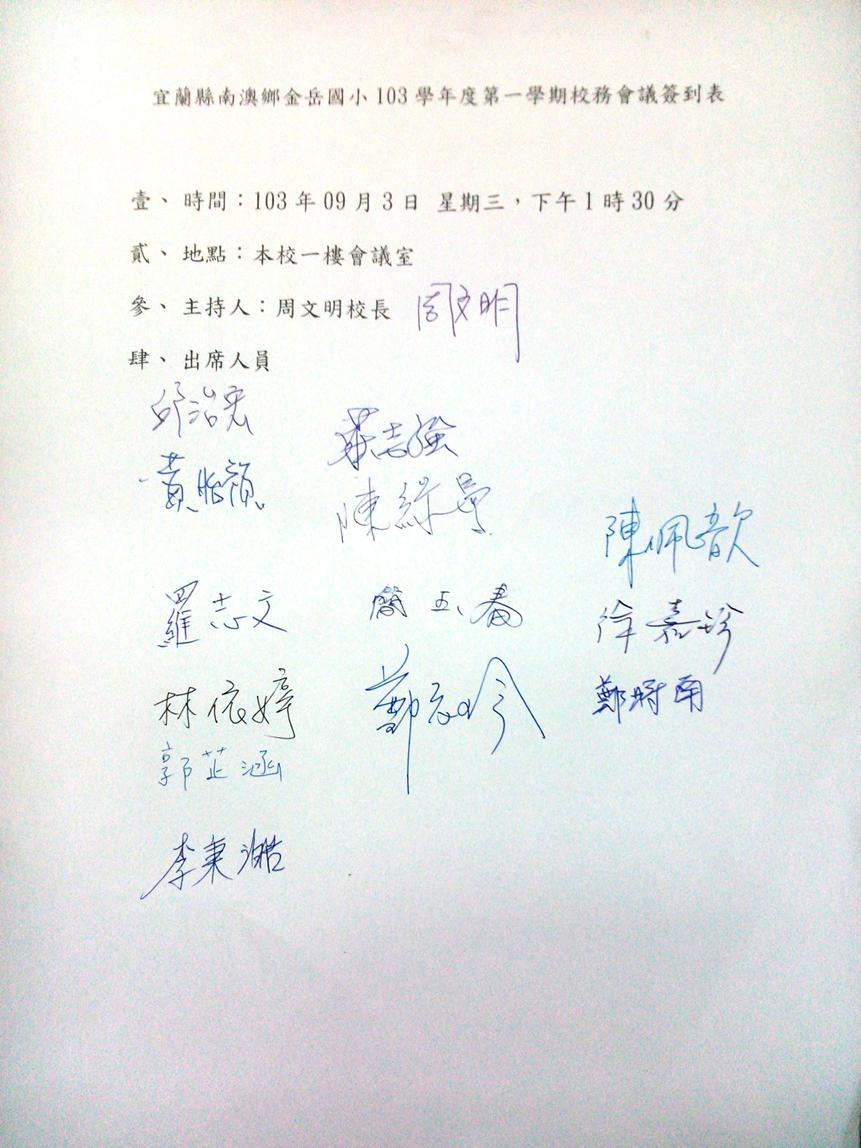 宜蘭縣南澳鄉金岳國小 103 學年度第一學期校務會議簽到表
壹、 時間：103 年 09 月 3 日 星期三，下午 1 時 30 分
貳、 地點：本校一樓會議室
參、 主持人：周文明校長 周文明
肆、 出席人員
邱治宏
莊志強
黃
陳綵
陳佩歆
羅志文
簡玉春
徐嘉珍
林依婷
鄭
鄭時雨
郭芷涵
李秉澔